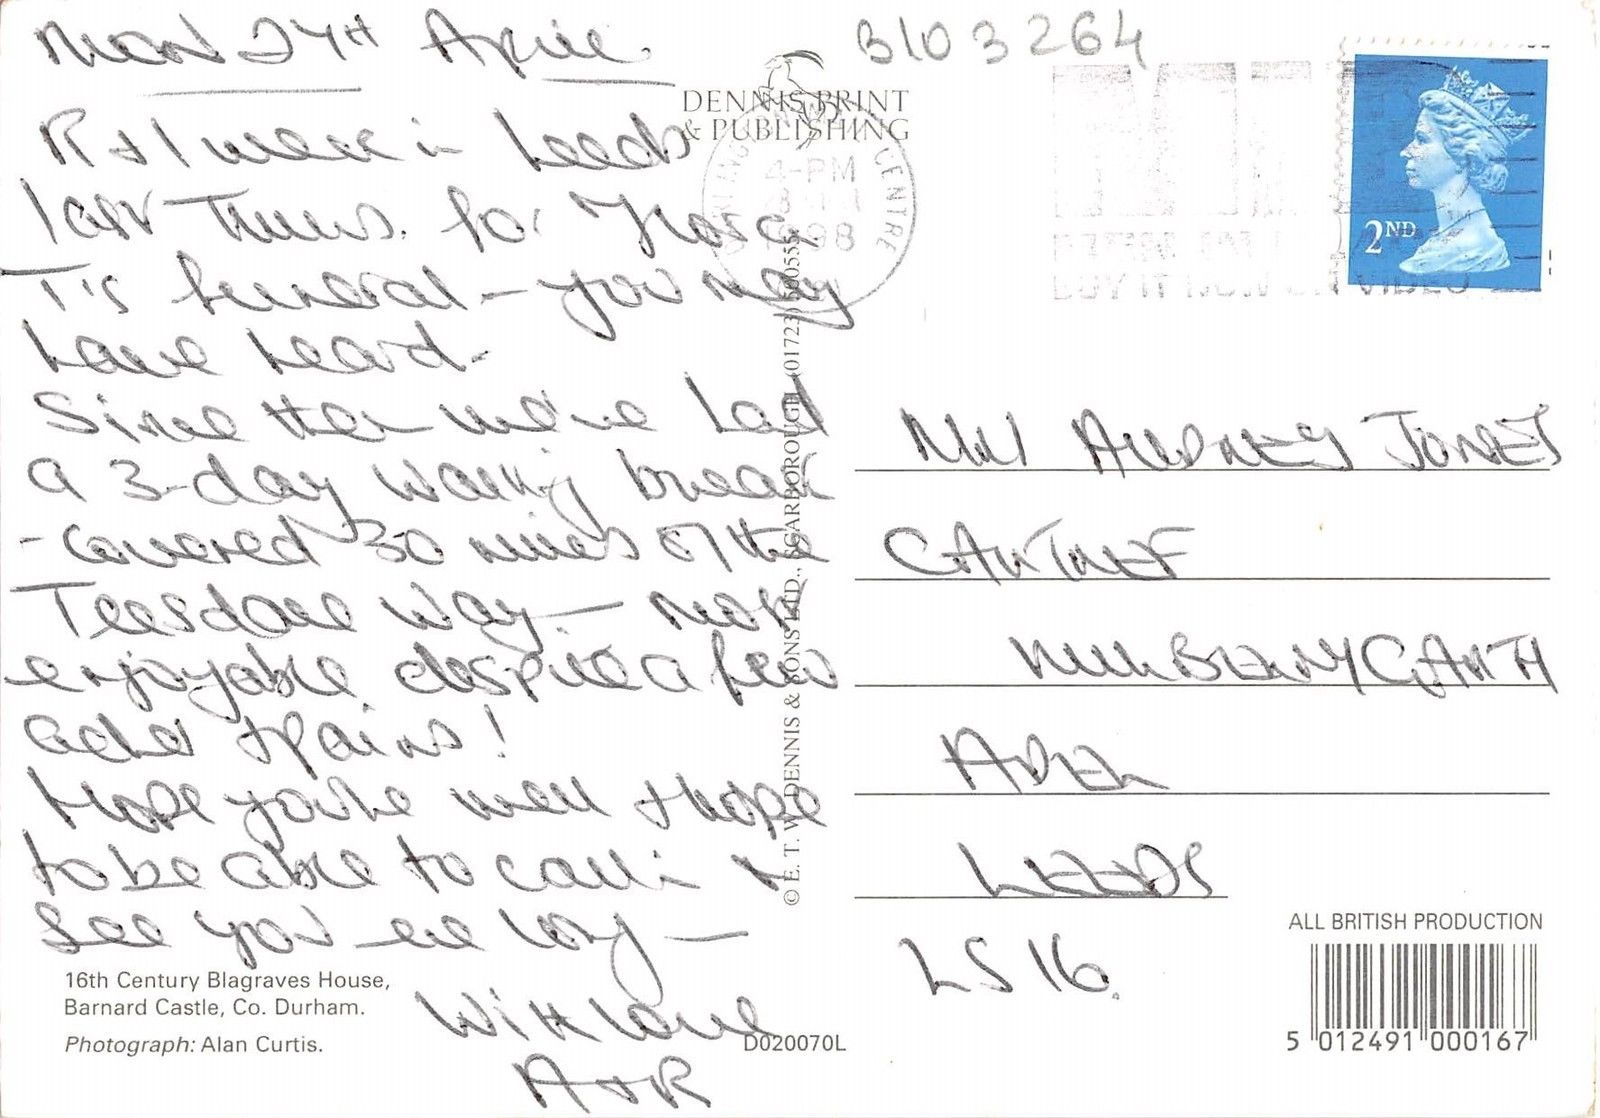 Mon 27th April
B103264
DENNIS PRINT
& PUBLISHING
R + I were in Leeds
last Thurs. for
T's funeral - you may
have heard -
Since then we've had
a 3-day walking break
- covered 30 miles of the
Teesdale Way - most
enjoyable despite a few
aches + pains!
Hope you're well + hope
to be able to call in +
see you ere long -
With love
A + R
4-PM
1998
CENTRE
BUY IT NOW ON VIDEO
2ND
© E. T. W. DENNIS & SONS LTD., SCARBOROUGH (01723) 500555
AUDREY JONES
GARTH
ADEL
LEEDS
LS 16.
16th Century Blagraves House,
Barnard Castle, Co. Durham.
Photograph: Alan Curtis.
D020070L
ALL BRITISH PRODUCTION
5 012491 000167